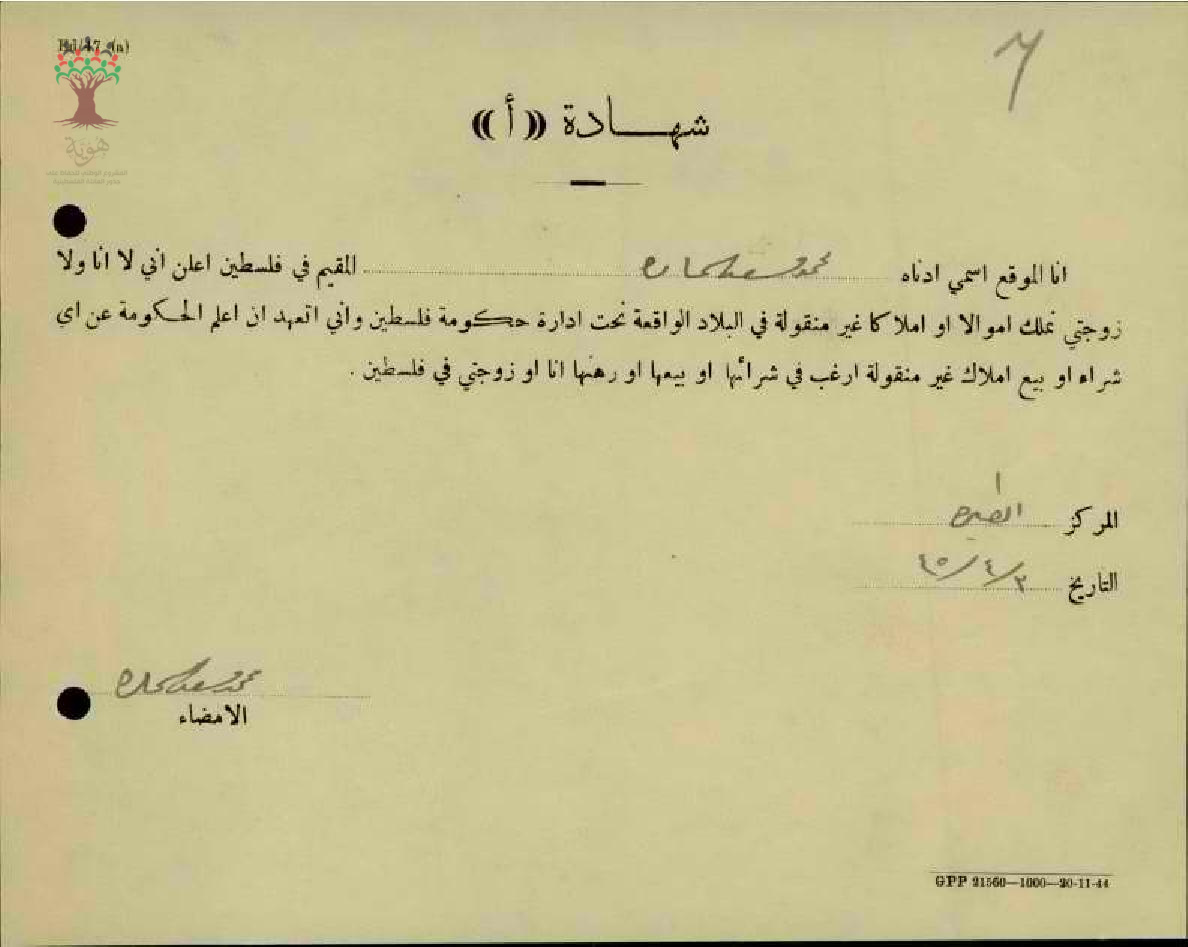 Ed/47 (a)
هوية
شهادة «أ»
انا الموقع اسمي ادناه محمد سعيد المقيم في فلسطين اعلن اني لا انا ولا
زوجتي نملك اموالا او املاكا غير منقولة في البلاد الواقعة تحت ادارة حكومة فلسطين واني اتعهد ان اعلم الحكومة عن اي
شراء او بيع املاك غير منقولة ارغب في شرائها او بيعها او رهنها انا او زوجتي في فلسطين .
المركز
التاريخ ٢/٤/٤٥
محمد سعيد
الامضاء
GPP 21560—1000—20-11-44